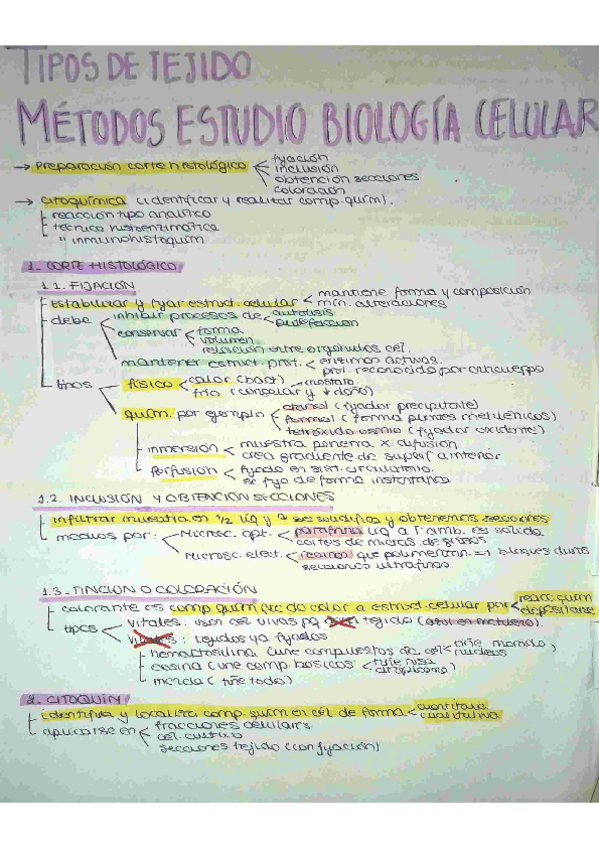 TIPOS DE TEJIDO
MÉTODOS ESTUDIO BIOLOGÍA CELULAR
→ Preparación corte histológico < fijación
inclusión
obtención secciones
coloración
→ Citoquímica (identificar y realizar comp. quím).
reacción tipo analítico
técnica histoenzimática
" inmunohistoquím
1- CORTE HISTOLÓGICO
1.1. FIJACIÓN
Estabilizar y fijar estruct. celular < mantiene forma y composición
mín. alteraciones
debe inhibir procesos de < autolisis
putrefacción
conservar forma
volumen
relación entre orgánulos cél.
mantener estruct. prot. < enzimas activas.
prot. reconocida por anticuerpo
tipos físico < calor (bact)
frío (congelar y ↓ daño)
quím. por ejemplo < etanol (fijador precipitante)
formol (forma puentes metilénicos)
tetróxido osmio (fijador oxidante)
inmersión < muestra penetra x difusión
crea gradiente de superf a interior
perfusión < fijado en sist. circulatorio.
se fija de forma instantánea
1.2. INCLUSIÓN Y OBTENCIÓN SECCIONES
infiltrar muestra en líq y se solidifica y obtenemos secciones
medios por: Microsc. opt. parafina líq a T amb. es sólida
cortes de micras de grosor
Microsc. elect. resinas que polimerizan → bloques duros
secciones ultrafinas
1.3- TINCIÓN O COLORACIÓN
colorante es comp quím que da color a estruct. celular por < reacc. quím
depositarse
tipos vitales: usan cél vivas pq tejido (azul en metileno).
: tejidos ya fijados
hematoxilina (une compuestos de cél < tiñe morado)
núcleos
eosina (une comp. básicos < tiñe rosa
citoplasma)
mezcla (tiñe todo)
2. CITOQUÍM
identifica y localiza comp. quím en cél de forma < cuantitativa
cualitativa
aplicarse en < fracciones celulares
cél. cultivo
secciones tejido (con fijación)